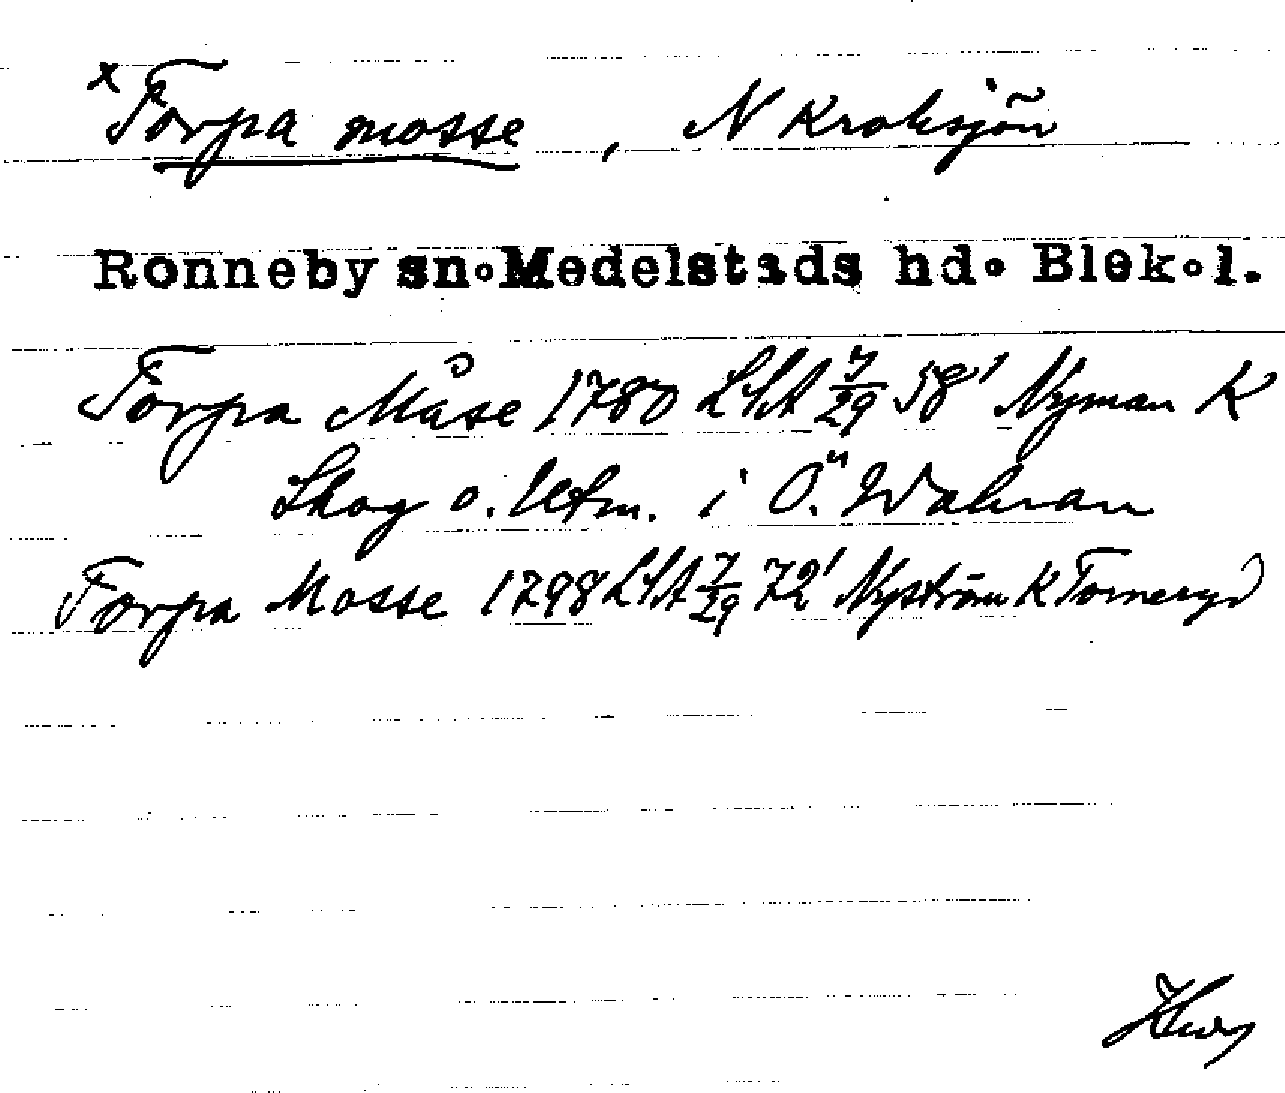 x Torpa mosse, N Kroksjön
Ronneby sn. Medelstads hd. Blek.l.
Torpa Måse 1780 LSA 7/29 58' Nyman K
Skog o. Utm. i Ö. Walnan
Torpa Mosse 1798 LSA 7/29 72' Nyström K Torneryd